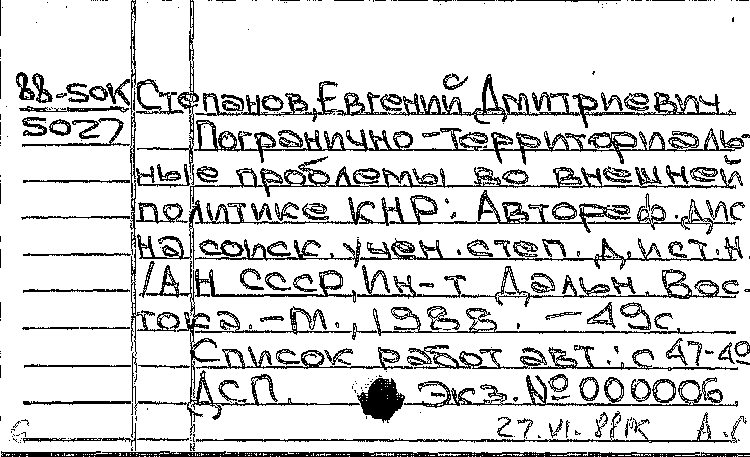 88-50К Степанов, Евгений Дмитриевич.
5027 Погранично-территориаль-
ные проблемы во внешней
политике КНР: Автореф. дис
на соиск. учен. степ. д. ист. н.
/АН СССР, Ин-т Дальн. Вос-
тока. - М., 1988. - 49с.
Список работ авт.: с 47-49
ДСП. Экз. № 000006
27.VI.88 А.С